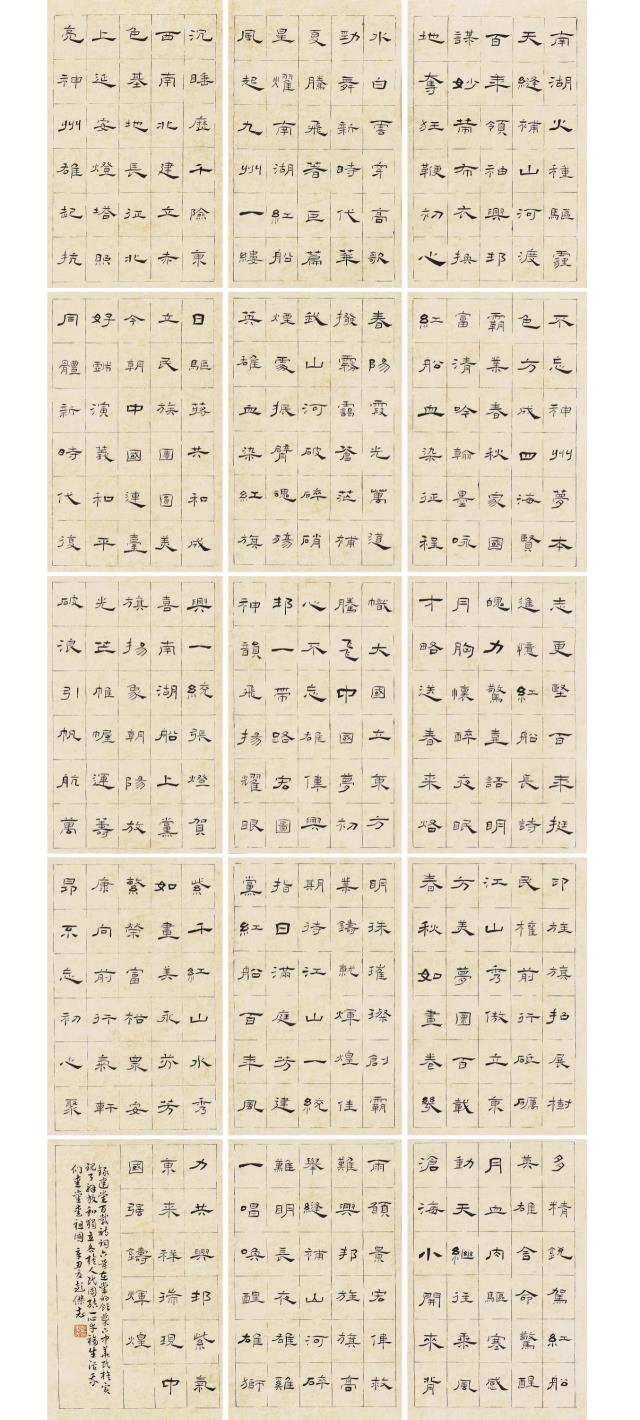 南湖火種驅霾
天縫補山河渡
百年領袖興邦
謀妙帶布衣換
地奪狂鞭初心
不忘神州夢本
色方成四海賢
霸業春秋家國
富清吟翰墨咏
紅船血染征程
志更堅百年挺
進憶紅船長詩
魄力驚臺語明
月胸懷醉夜眠
才略送春来烙
印旌旗招展樹
民權前行砥礪
江山秀傲立東
方美夢圓百載
春秋如畫卷幾
多精銳駕紅船
英雄舍命驚醒
月血肉驅寒感
動天繼往乘風
滄海小開來背
水白雲穿高歌
勁舞新時代華
夏騰飛著巨篇
星耀南湖紅船
風起九州一縷
春陽霞光萬道
撥霧靄蒼茫補
我山河破碎硝
煙處振臂魂殤
英雄血染紅旗
幟大國立東方
騰飛中國夢初
心不忘雄偉興
邦一帶路宏圖
神韻飛揚耀眼
明珠璀璨創霸
業鑄就輝煌佳
期待江山一統
指日滿庭芳建
黨紅船百年風
雨領景宏偉救
難興邦旌旗高
舉縫補山河碎
難明長夜雄雞
一唱喚醒雄獅
沉睡歷千險東
西南北建立赤
色基地長征北
上延安燈塔照
亮神州雄起抗
日驅蔣共和成
立民族團圓美
今朝中國連臺
好戲演義和平
同體新時代復
興一統張燈賀
喜南湖船上黨
旗揚象朝陽放
光芒帷幄運籌
破浪引帆航萬
紫千紅山水秀
如畫美永芬芳
繁榮富裕眾安
康向前行氣軒
昂不忘初心聚
力共興邦紫氣
東來祥瑞現中
國强鑄輝煌
錄建黨百載詩詞六首在黨的領導下中華民族實
現了解放和獨立各族人民團結一心幸福生活我
們愛黨愛祖國 辛丑